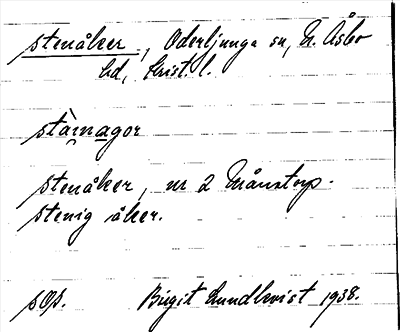 stenåker, Oderljunga sn, N. Åsbo
hd, Krist. l.
stàmagor
stenåker, nr 2 Månstorp.
stenig åker.
sOp. Birgit Lundkvist 1938.